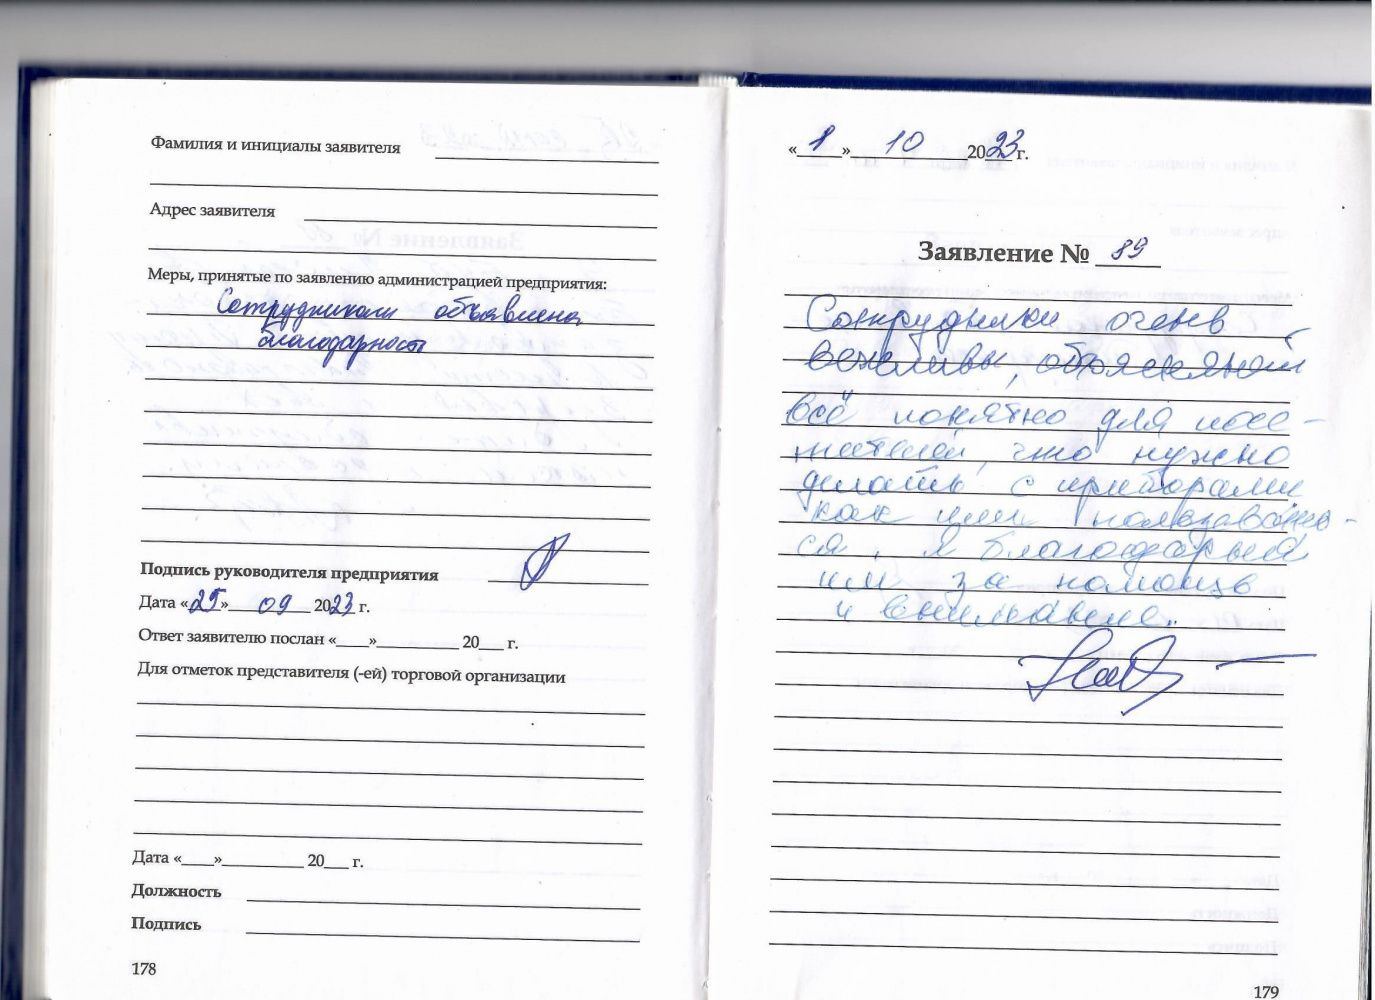 Фамилия и инициалы заявителя
Адрес заявителя
Меры, принятые по заявлению администрацией предприятия:
Сотрудникам объявлена
благодарность
Подпись руководителя предприятия
Дата «25» 09 2023 г.
Ответ заявителю послан «____»__________ 20___ г.
Для отметок представителя (-ей) торговой организации
Дата «____»__________ 20___ г.
Должность
Подпись
178
«1» 10 2023 г.
Заявление № 89
Сотрудники очень
вежливы, объясняют
всё понятно для посе-
тителей, что нужно
делать с приборами,
как ими пользовать-
ся, я благодарна
им за помощь
и внимание.
179